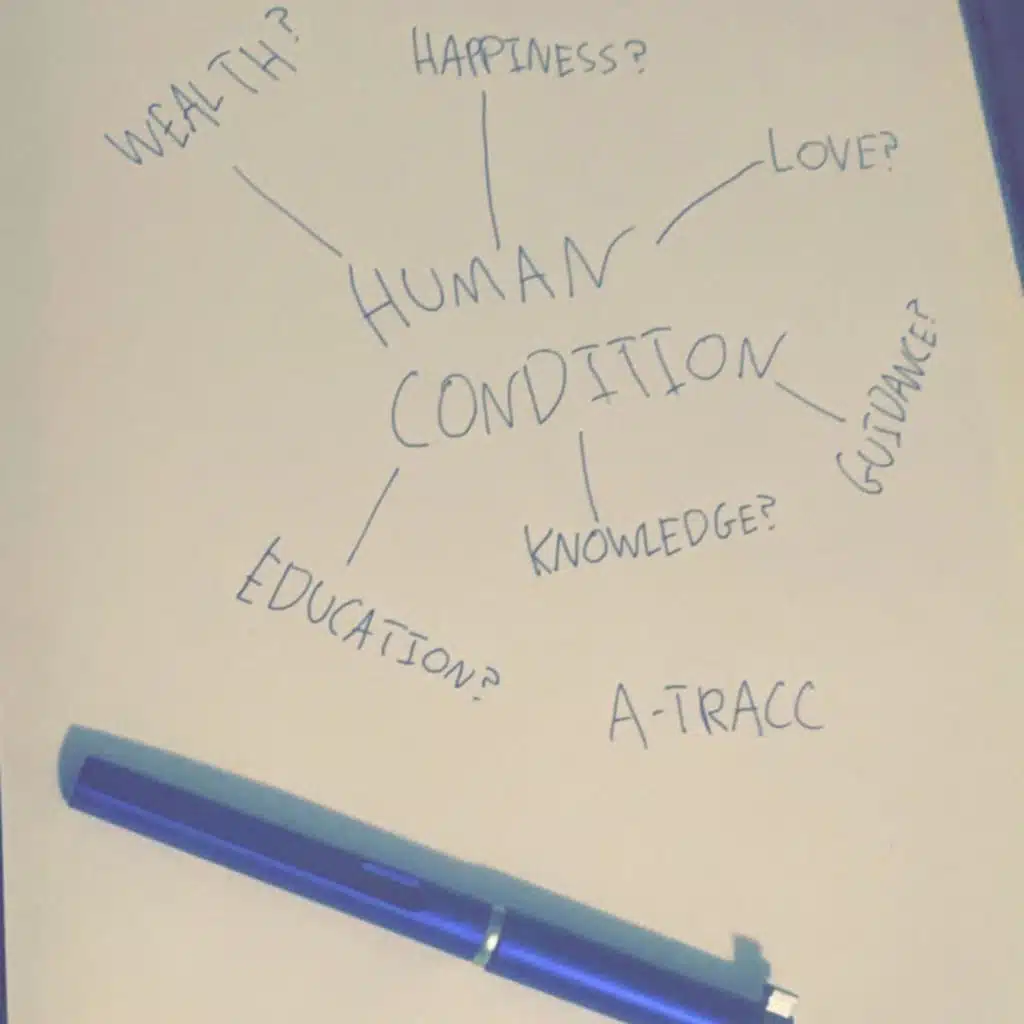 WEALTH?
HAPPINESS?
LOVE?
HUMAN
CONDITION
GUIDANCE?
KNOWLEDGE?
EDUCATION?
A-TRACC